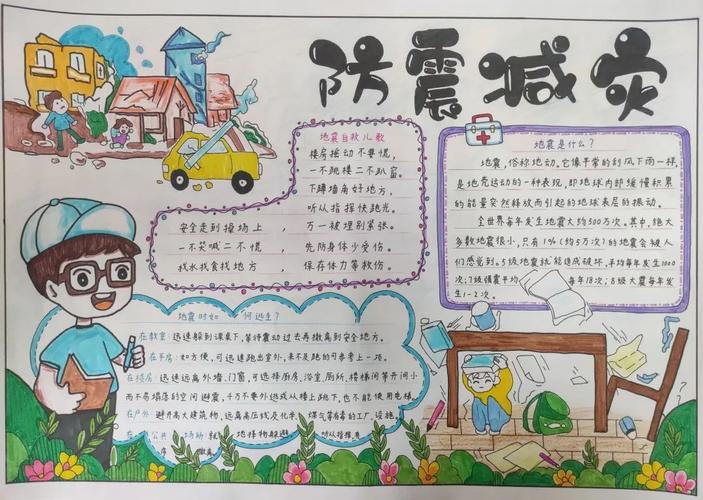 防震减灾
地震自救儿歌
楼房摇动不要慌，
一不跳楼二不趴窗。
下蹲墙角好地方，
听从指挥快跑光。
安全走到操场上，
万一被埋别紧张。
一不哭喊二不慌，
先防身体少受伤。
找水找食找地方，
保存体力等救伤。
地震是什么？
地震，俗称地动。它像平常的刮风下雨一样，
是地壳运动的一种表现，即地球内部缓慢积累
的能量突然释放而引起的地球表层的振动。
全世界每年发生地震大约500万次。其中，绝大
多数地震很小，只有1%(约5万次)的地震会被人
们感觉到。5级地震就能造成破坏，平均每年发生1000
次；7级强震平均 每年18次；8级大震每年发
生1-2次。
地震时如何逃生？
在教室：迅速躲到课桌下，等待震动过去再撤离到安全地方。
在平房：如方便，可迅速跑出室外，来不及跑的可参考上一项。
在楼房：迅速远离外墙、门窗，可选择厨房、浴室、厕所、楼梯间等开间小
而不易塌落的空间避震，千万不要外逃或从楼上跳下，也不能使用电梯。
在户外：避开高大建筑物，远离高压线及化学、煤气等有毒的工厂、设施。
公共场所：就地择物躲避 听从指挥，具
席